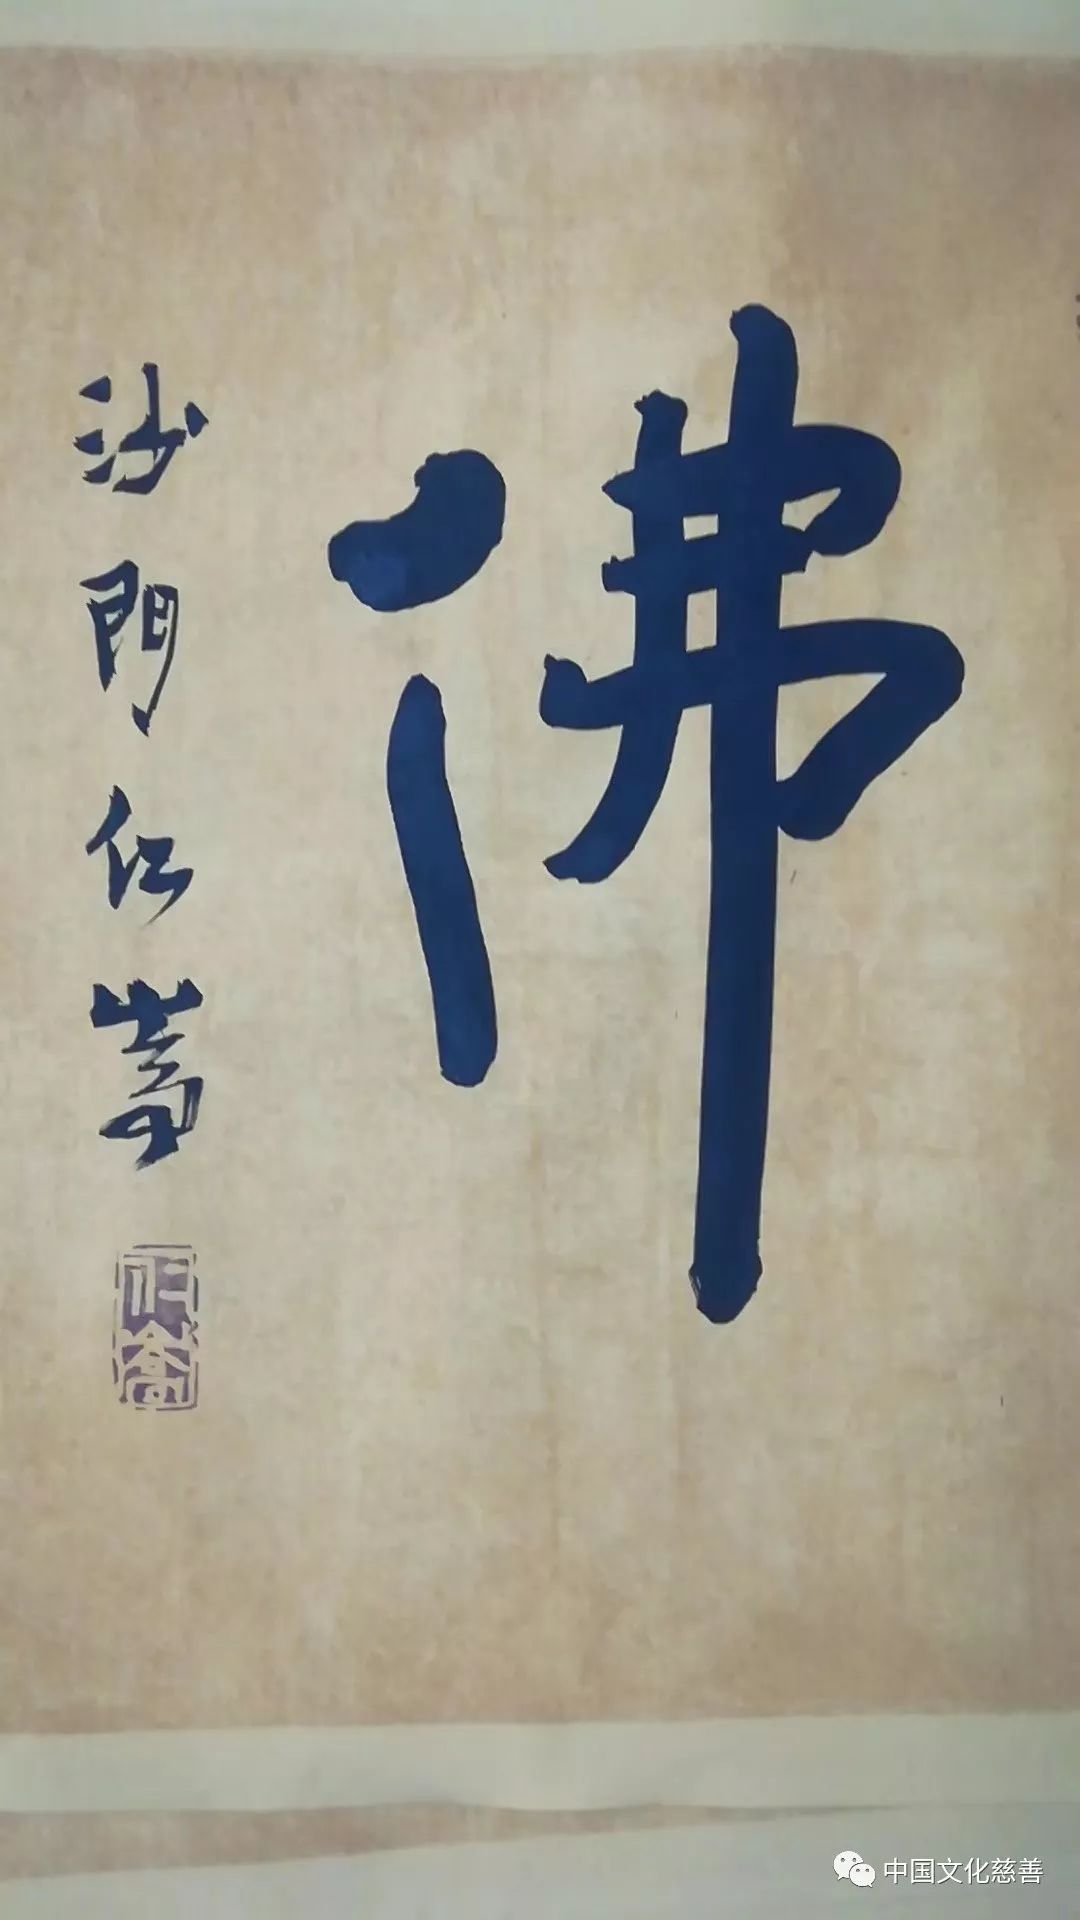 佛
沙門仁嵩
中国文化慈善